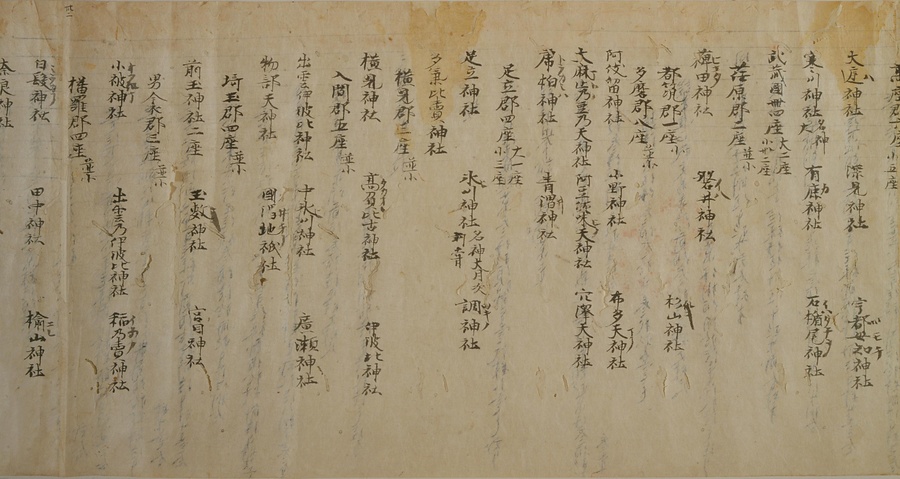 大庭神社 深見神社 宇都母知神社
寒川神社 名神大 有鹿神社 石楯尾神社
武蔵國卌四座 大二座 小卌二座
荏原郡二座 並小
薭田神社 磐井神社
都筑郡一座 小 杉山神社
多磨郡八座 並小
阿伎留神社 小野神社 布多天神社
大麻止乃豆乃天神社 阿豆佐味天神社 穴澤天神社
虎柏神社 青渭神社
足立郡四座 大一座 小三座
足立神社 氷川神社 名神大月次新甞 調神社
多氣比賣神社
横見郡三座 並小
横見神社 高負比古神社 伊波比神社
入間郡五座 並小
出雲伊波比神社 中氷川神社 廣瀬神社
物部天神社 國渭地祇社
埼玉郡四座 並小
前玉神社二座 玉敷神社 宮目神社
男衾郡三座 並小
小被神社 出雲乃伊波比神社 稲乃賣神社
播羅郡四座 並小
白髪神社 田中神社 楡山神社
奈良神社